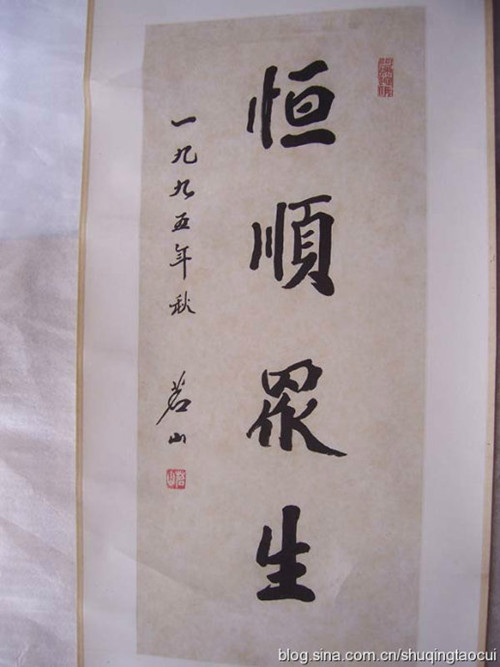 恒順眾生
一九九五年秋
茗山
blog.sina.com.cn/shuqingtaocui